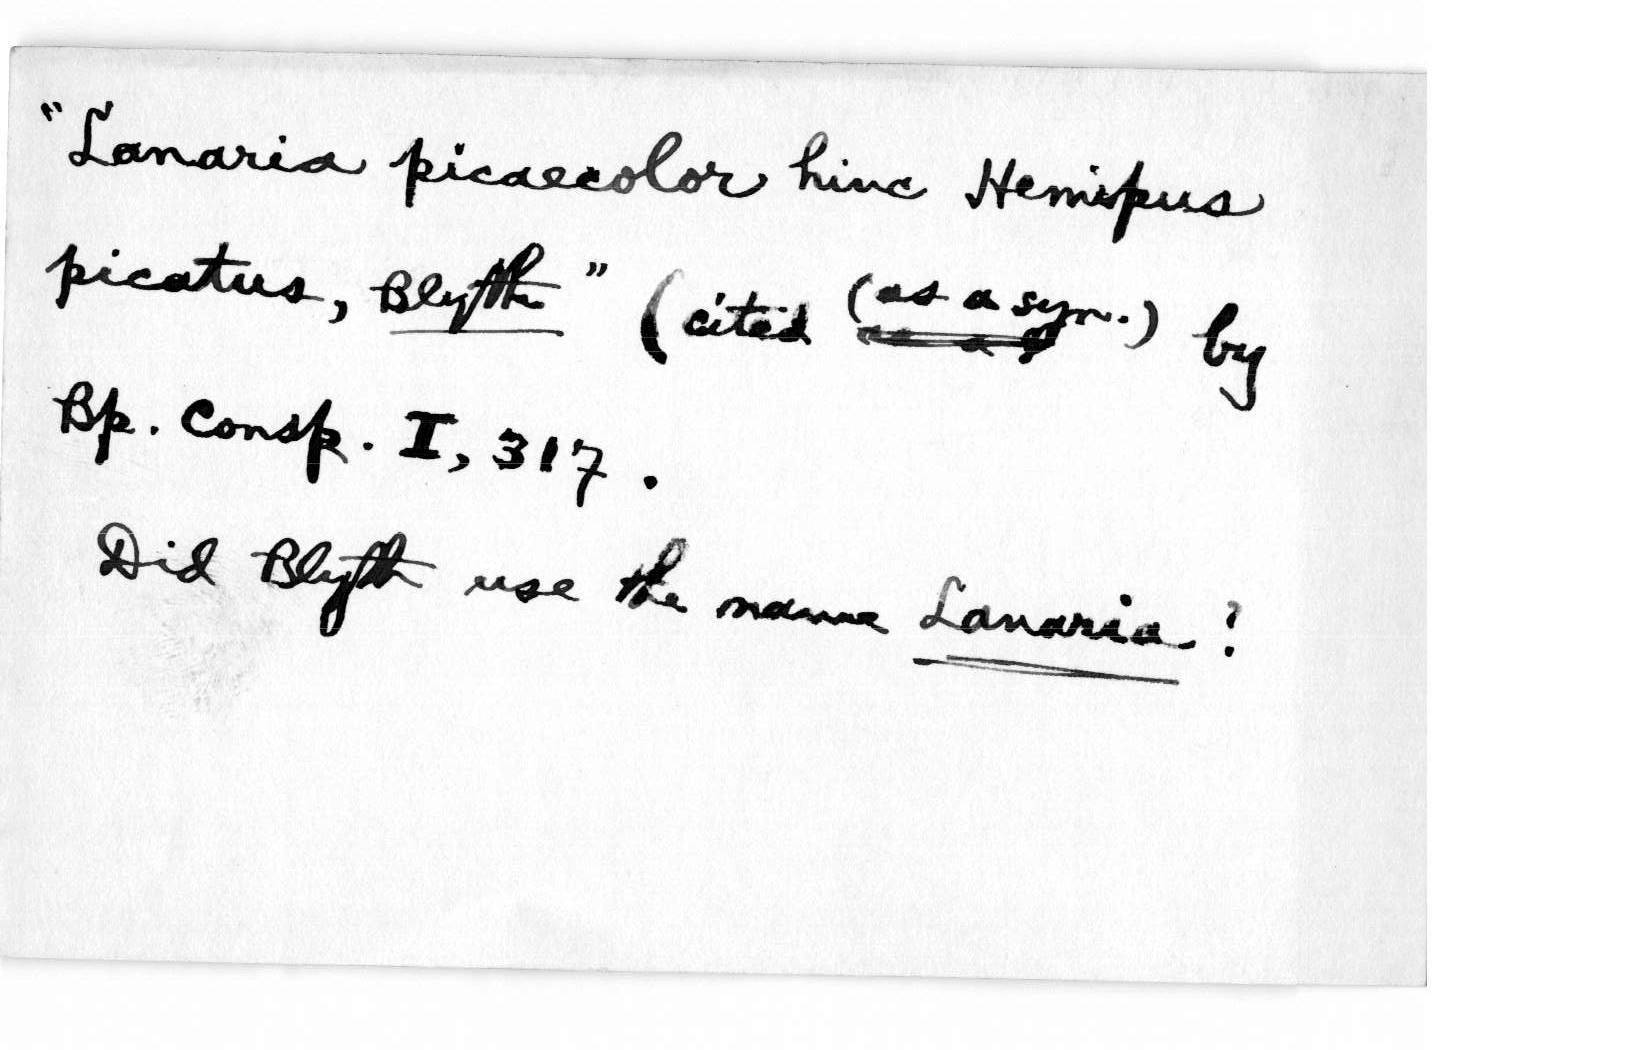 "Lanaria picaecolor hinc Hemipus
picatus, Blyth" (cited (as a syn.) by
Bp. Consp. I, 317.
Did Blyth use the name Lanaria?